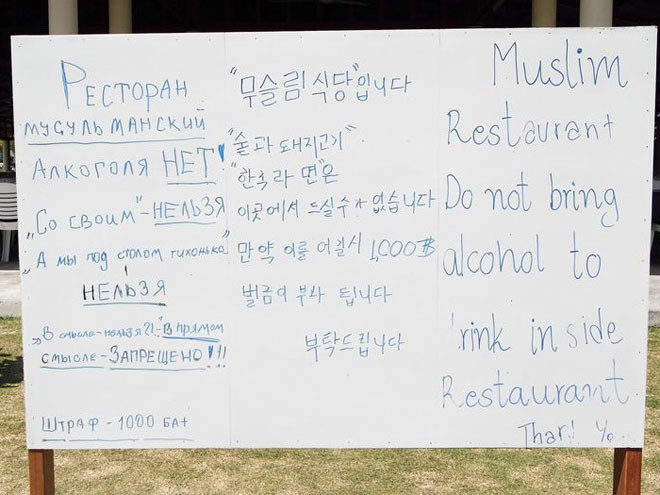 Ресторан
мусульманский
Алкоголя НЕТ!
„Со своим" - НЕЛЬЗЯ
„А мы под столом тихонько"
НЕЛЬЗЯ
„В смысле - нельзя?!" - В прямом
смысле - ЗАПРЕЩЕНО!!!
Штраф - 1000 бат
"무슬림 식당"입니다
"술과 돼지고기"
"한측라면"은
이곳에서 드실수가 없습니다
만약 이를 어길시 1,000฿
벌금이 부과 됩니다
부탁드립니다
Muslim
Restaurant
Do not bring
alcohol to
rink inside
Restaurant